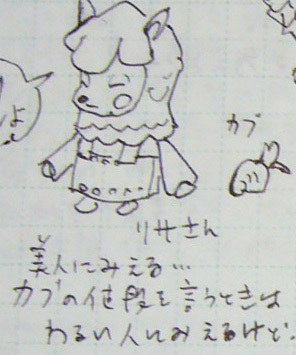 よ
カブ
リサさん
美人にみえる…
カブの値段を言うときは
わるい人にみえるけど…